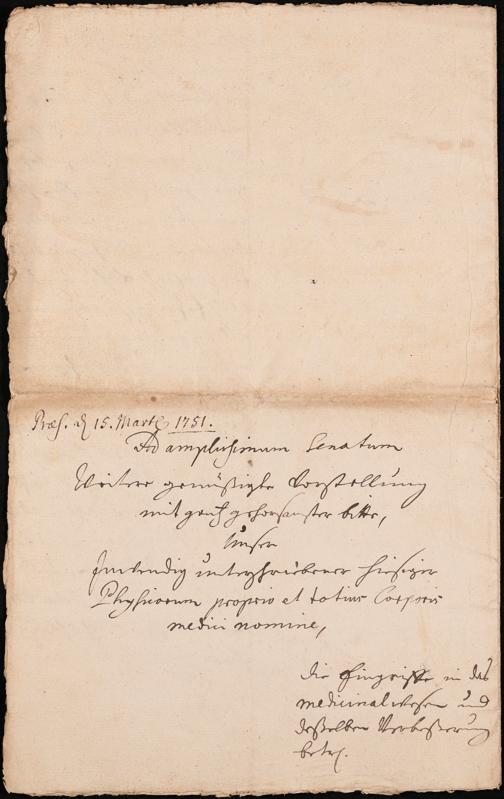 Præs. d 15. Martÿ 1751.
Ad amplissimum Senatum
Weitere gemüßigte Vorstellung
mit gantz gehorsamster bitte,
Unser
Inwendig unterschriebener hiesiger
Physicorum proprio et totius Corporis
medici nomine,
die Eingriffe in das
medicinal wesen und
deßelben Verbeßerung
betr.